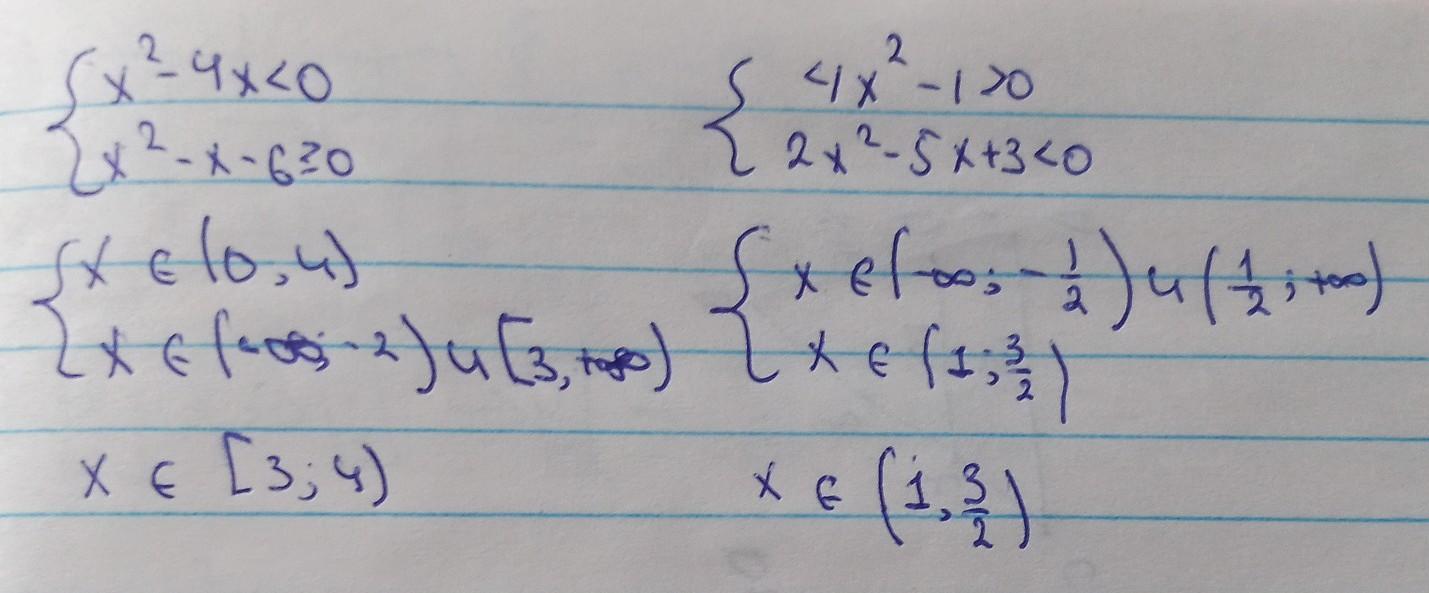 x²-4x<0
x²-x-6≥0
x ∈ (0,4)
x ∈ (-∞; -2) ∪ [3, +∞)
x ∈ [3; 4)
4x²-1>0
2x²-5x+3<0
x ∈ (-∞; -1/2) ∪ (1/2; +∞)
x ∈ (1; 3/2)
x ∈ (1, 3/2)